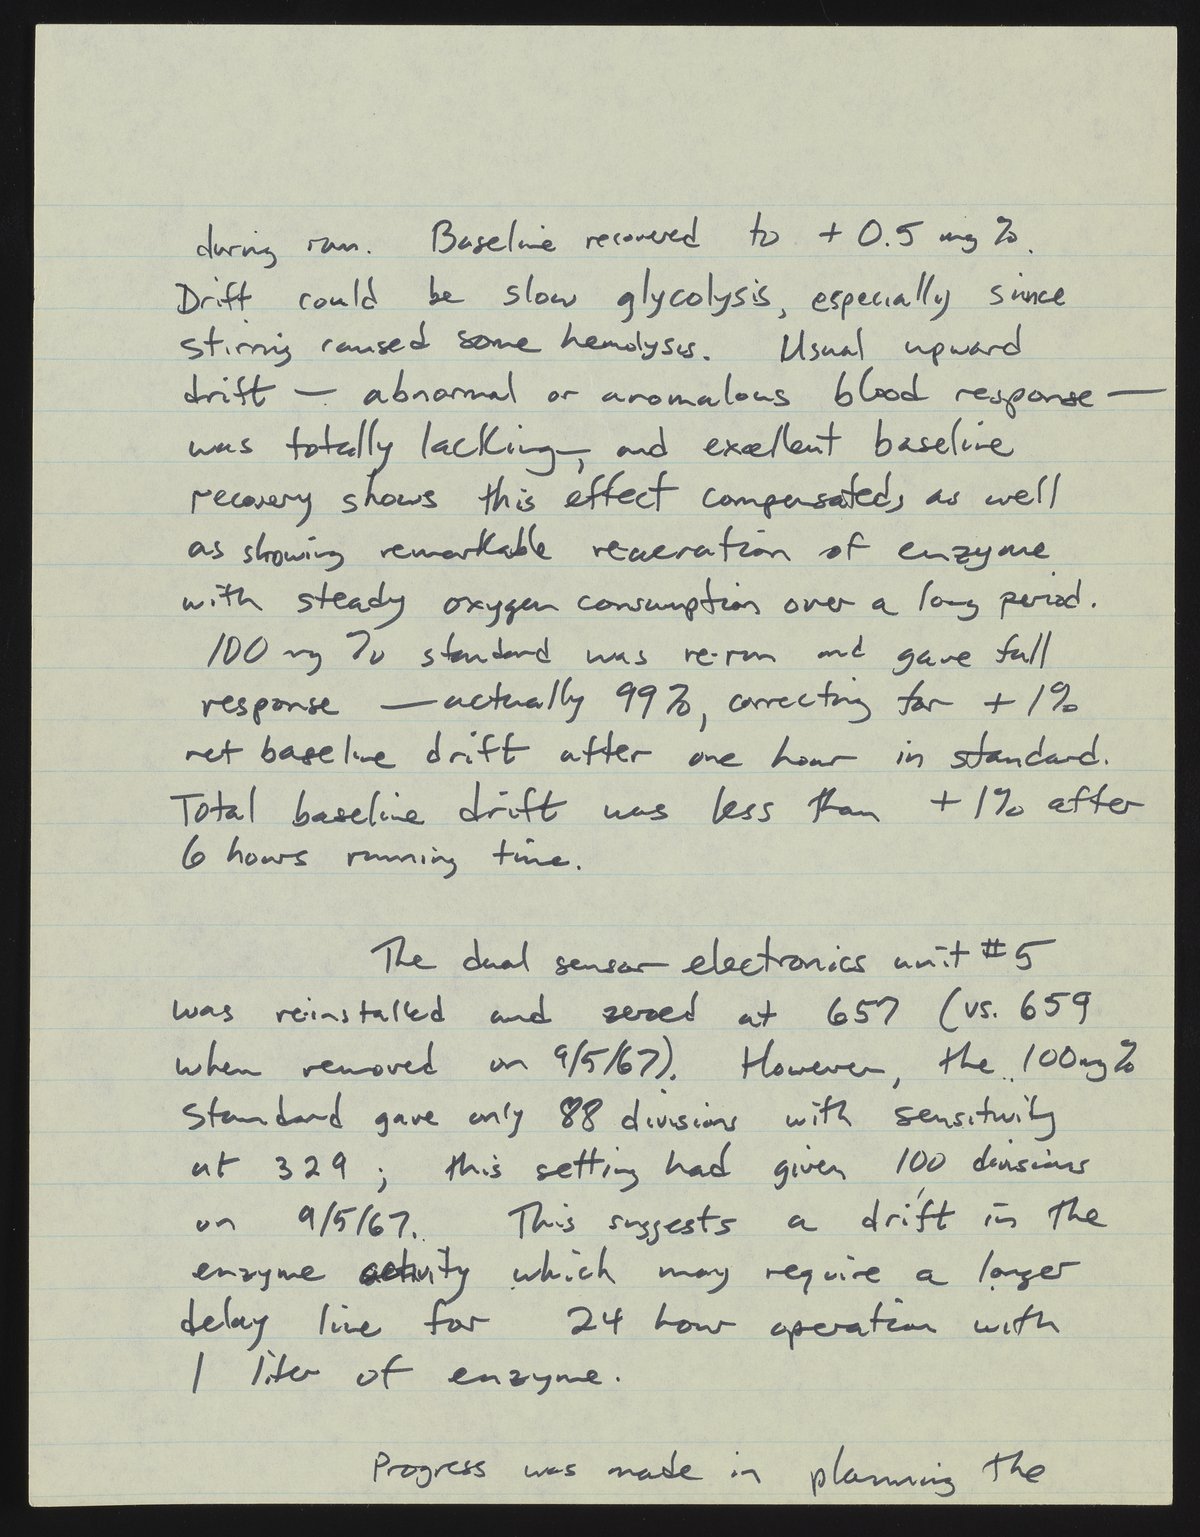 during run. Baseline recovered to + 0.5 mg %.
Drift could be slow glycolysis, especially since
stirring caused some hemolysis. Usual upward
drift — abnormal or anomalous blood response —
was totally lacking, and excellent baseline
recovery shows this effect compensated, as well
as showing remarkable reaeration of enzyme
with steady oxygen consumption over a long period.
100 mg % standard was re-run and gave full
response — actually 99%, correcting for + 1%
net baseline drift after one hour in standard.
Total baseline drift was less than + 1% after
6 hours running time.
The dual sensor electronics unit #5
was reinstalled and zeroed at 657 (vs. 659
when removed on 9/5/67). However, the 100 mg %
standard gave only 88 divisions with sensitivity
at 329; this setting had given 100 divisions
on 9/5/67. This suggests a drift in the
enzyme activity which may require a larger
delay line for 24 hour operation with
1 liter of enzyme.
Progress was made in planning the